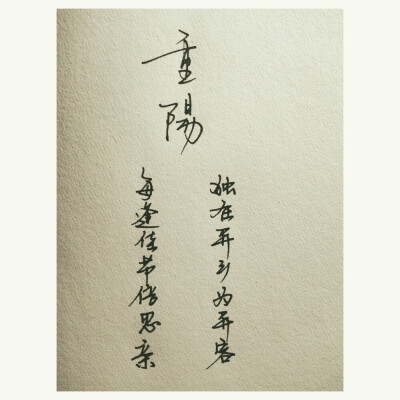 重陽
独在异乡为异客
每逢佳节倍思亲